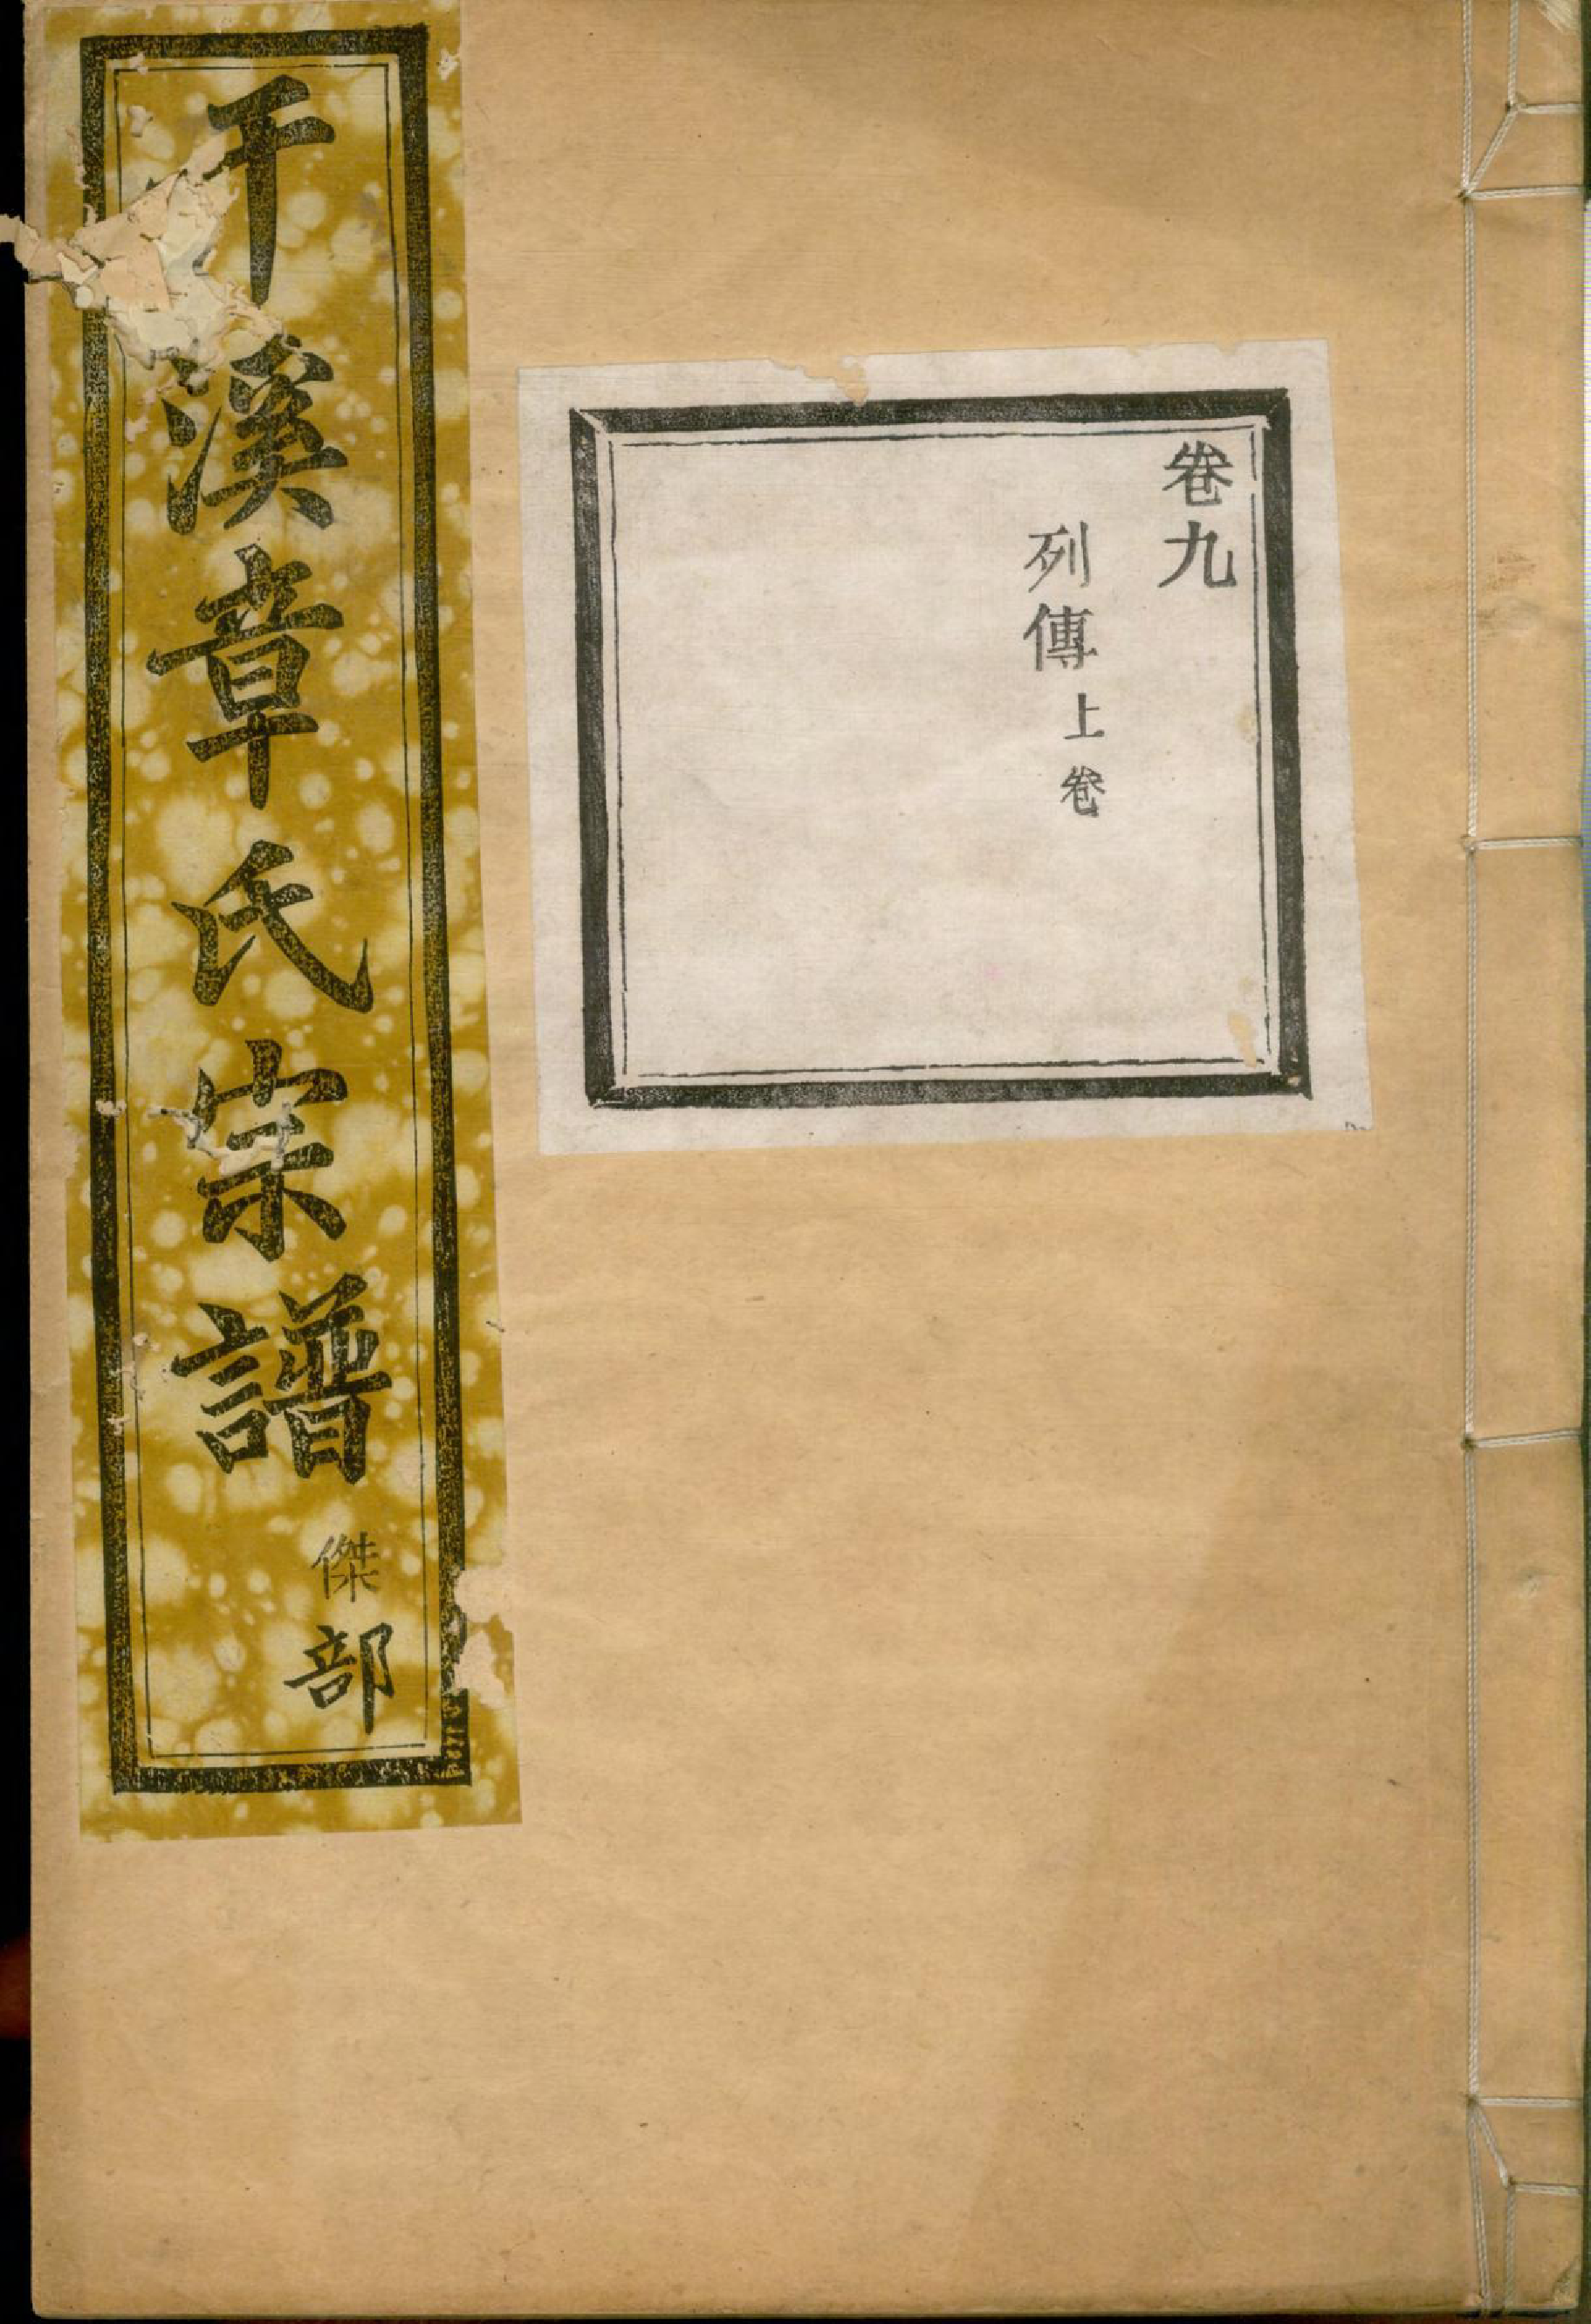 卷九
列傳上卷
干溪章氏宗譜
傑部